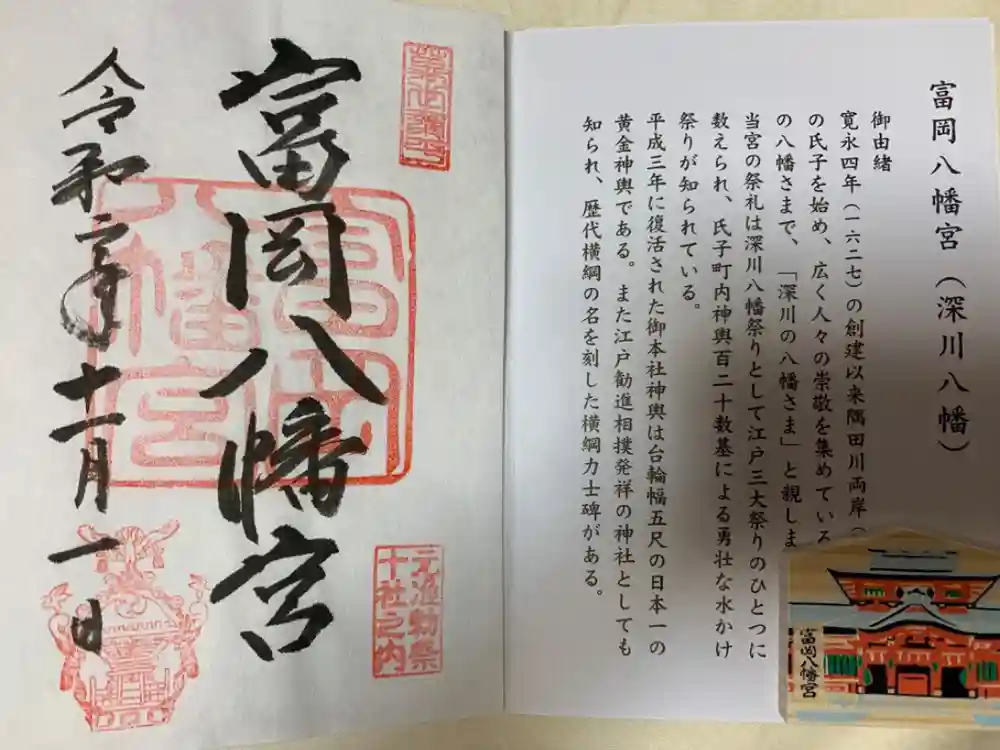 富岡八幡宮(深川八幡)
御由緒
寛永四年(一六二七)の創建以来隅田川両岸(
の氏子を始め、広く人々の崇敬を集めている
の八幡さまで、「深川の八幡さま」と親しま
当宮の祭礼は深川八幡祭りとして江戸三大祭りのひとつに
数えられ、氏子町内神輿百二十数基による勇壮な水かけ
祭りが知られている。
平成三年に復活された御本社神輿は台輪幅五尺の日本一の
黄金神輿である。また江戸勧進相撲発祥の神社としても
知られ、歴代横綱の名を刻した横綱力士碑がある。
富岡八幡宮
元准勅祭
十社之内
富岡八幡宮
富岡
八幡宮
令和 年十一月一日